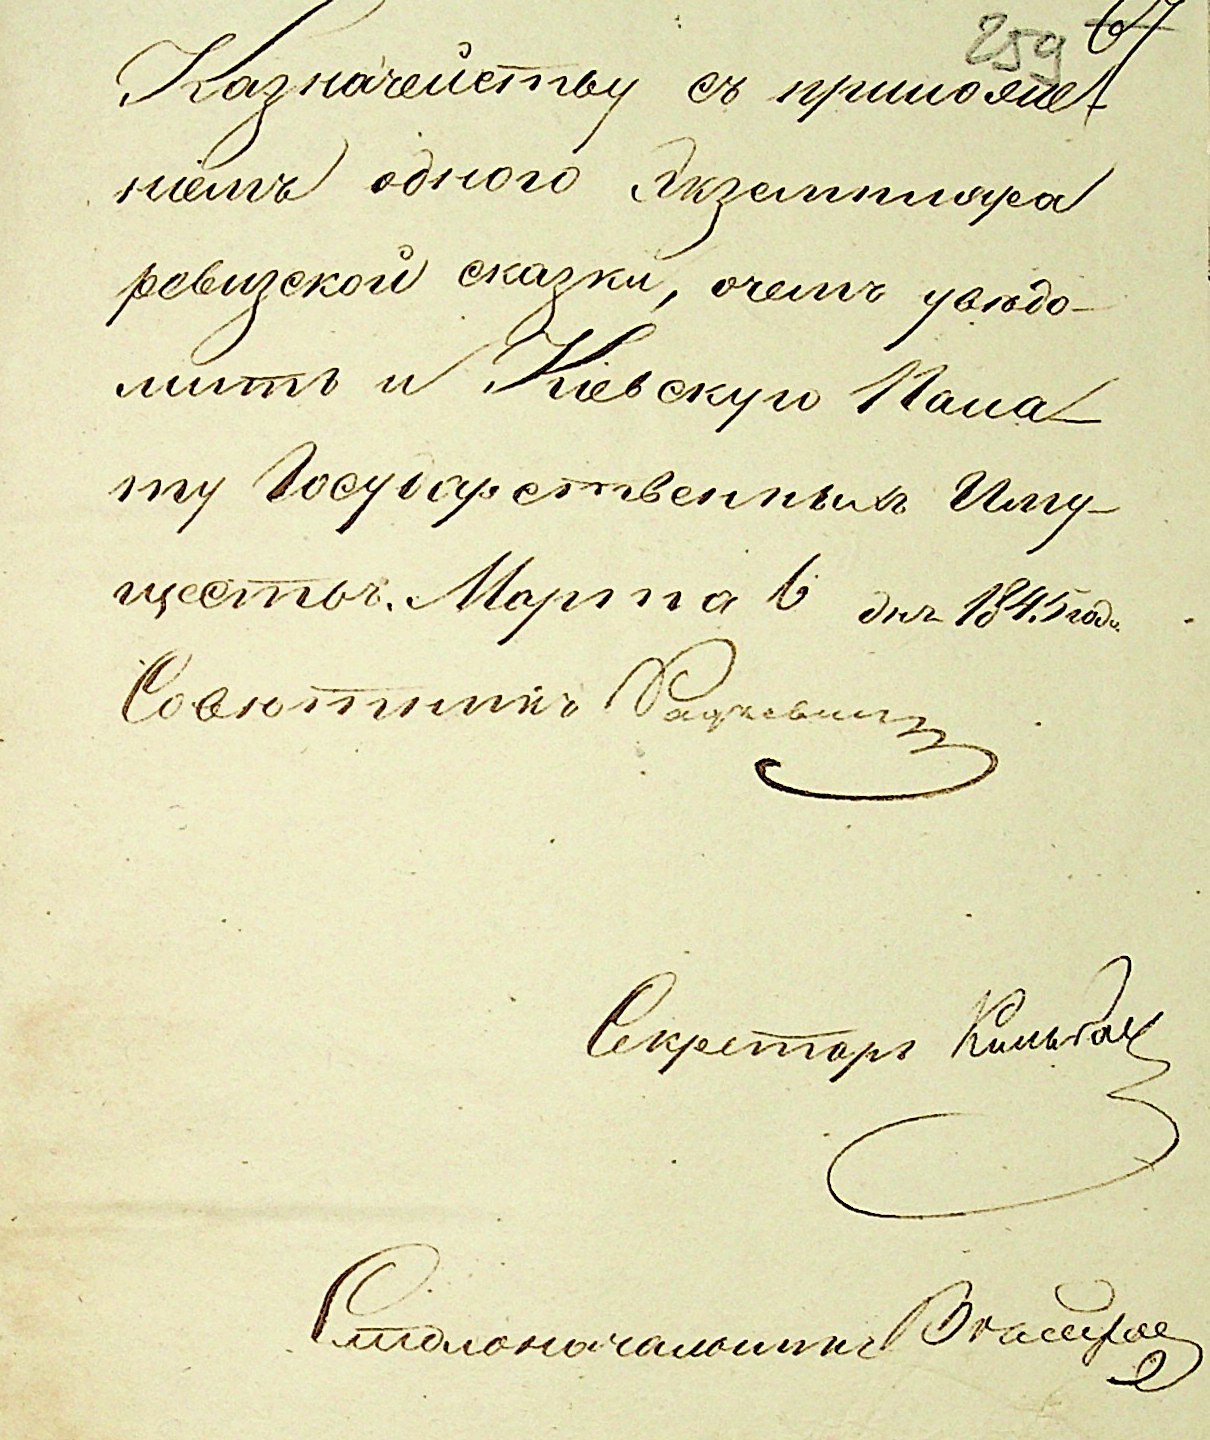 259 67
Казначейству съ приложе-
ніемъ одного Экземпляра
ревизской сказки, очемъ увѣдо-
мить и Кіевскую Пала-
ту Государственныхъ Иму-
ществъ. Марта 6 дня 1845 года.
Совѣтникъ
Секретарь
Столоначальникъ